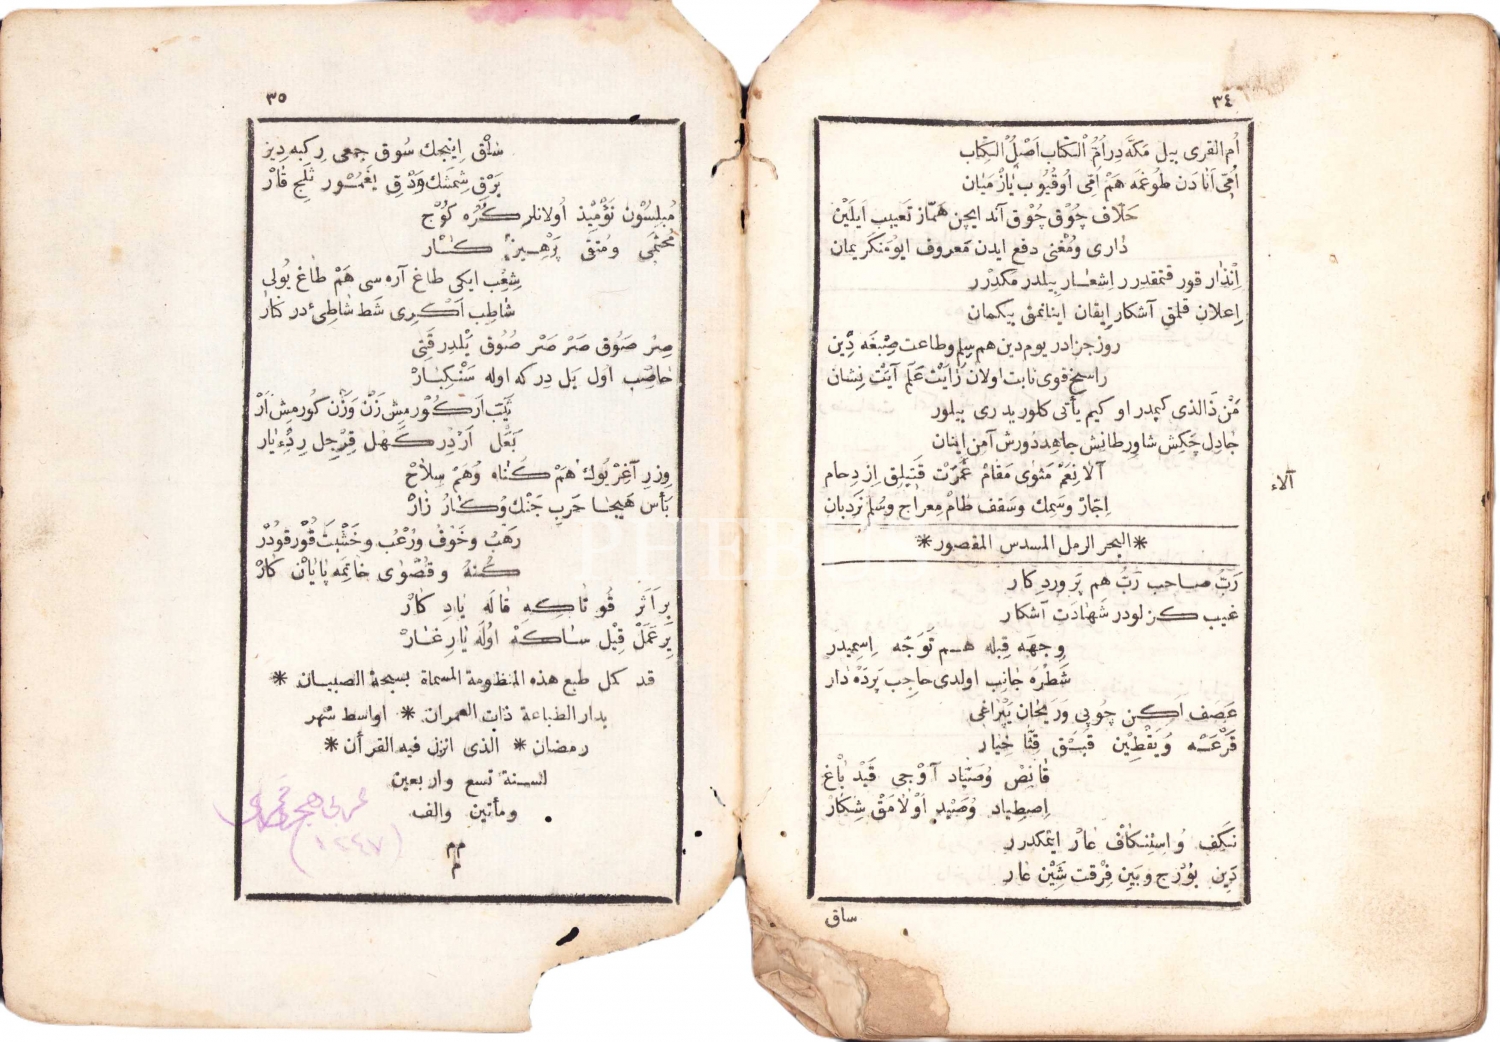 ٣٤
اُم القرى بيل مكّه در اُمُّ الْكتاب اَصْلُ الْكِتاب
اُمّى اَنادن طوغمه هم اُمّى اوقيوب ياز مَيان
حلّاف چوق چوق آند ايچن همّاز تعييب ايلين
دارى ومُغنى دفع ايدن معروف ايو منكر يمان
اِنْذار قورقتمقدر اِشعار بيلدرمكدر
اِعلان قلق آشكار اِيقان اينانمق بيكمان
روز جزا در يوم دين هم سلم وطاعت صِبْغَه دِين
راسخ قوى ثابت اولان رايَتْ عَلَم آيَتْ نِشان
مَنْ ذَالذى كيمدر او كيم يأتى كلور يدرى بيلور
جادِل چكش شاوِر طانش جاهِد دورش آمِن اينان
آلا نِعَمْ مَثْوى مَقامْ غَمْرَتْ قَتيلق اِزدحام
آلاء
اِجّارْ وسَمك وسَقف طامْ مِعراج وسُلم نَردبان
* البحر الرمل المسدس المقصور *
رَبّ صاحب رَبّ هم پروردكار
غيب كزلودر شَهادَت آشكار
وجهه قبله هم توجّه اِسميدر
شَطْرَه جانب اولدى حاجِب پَردَه دار
عَصف اكن چوپى ورَيْحان يَپْراغى
قَرْعَه ويَقْطِين قَبَق قِثّا خِيار
قانِص وُصَيّاد آوجى قَيْد باغ
اِصطِياد وُصَيْد اَوْلامَقْ شِكار
نَكَف وُاِسْتِنكافْ عارْ ايتمكدر
دَين بُورْج وبَين فِرْقت شَيْن عار
ساق
٣٥
سْاق اينجك سُوق جمعى ركبه دِيز
بَرْق شِمشَك وَدْق يَغْمُور ثَلْج قار
مُبلِسُون نَوْميذ اُولانلر كُرّه كوُج
مُحْتَمى ومُتقى پَرْهيز كار
شِعْب ايكى طاغ آره سى هَمْ طاغ يُولى
شاطِب اَكْرى شَط شاطِىء در كنار
صِرْ صَوُق صَرْ صَرْ صُوُق يَلْدر قَتى
حاصِب اول يل دركه اوله سَنْكِبارْ
ثَيّب اَر كورمِش زَنْ وزَن كورمِش اَرْ
بَعْل اَرْدِر كَهْل قِرْجِل رِدْء يار
وِزرِ آغِرْ يُوك هَمْ كُناه وُهَمْ سِلاحْ
بَأس هَيْجا حَرب جَنْك وكارُ زارْ
رهَبْ وخَوف ورُعْب وخَشْيَت قورقودر
كُنهْ وقُصْوى خاتِمه پايان كارْ
بر اَثَر قُو تاكه قاله يادكارْ
بِر عَمَلْ قِيْل ساكه اولَه يارِغارْ
قد كمل طبع هذه المنظومة المسماة بسبحة الصبيان *
بدار الطباعة ذات العمران * اواسط شهر
رمضان * الذى انزل فيه القرأن *
لسنة تسع واربعين
ومأتين والف
م م
م
(١٢٤٧)